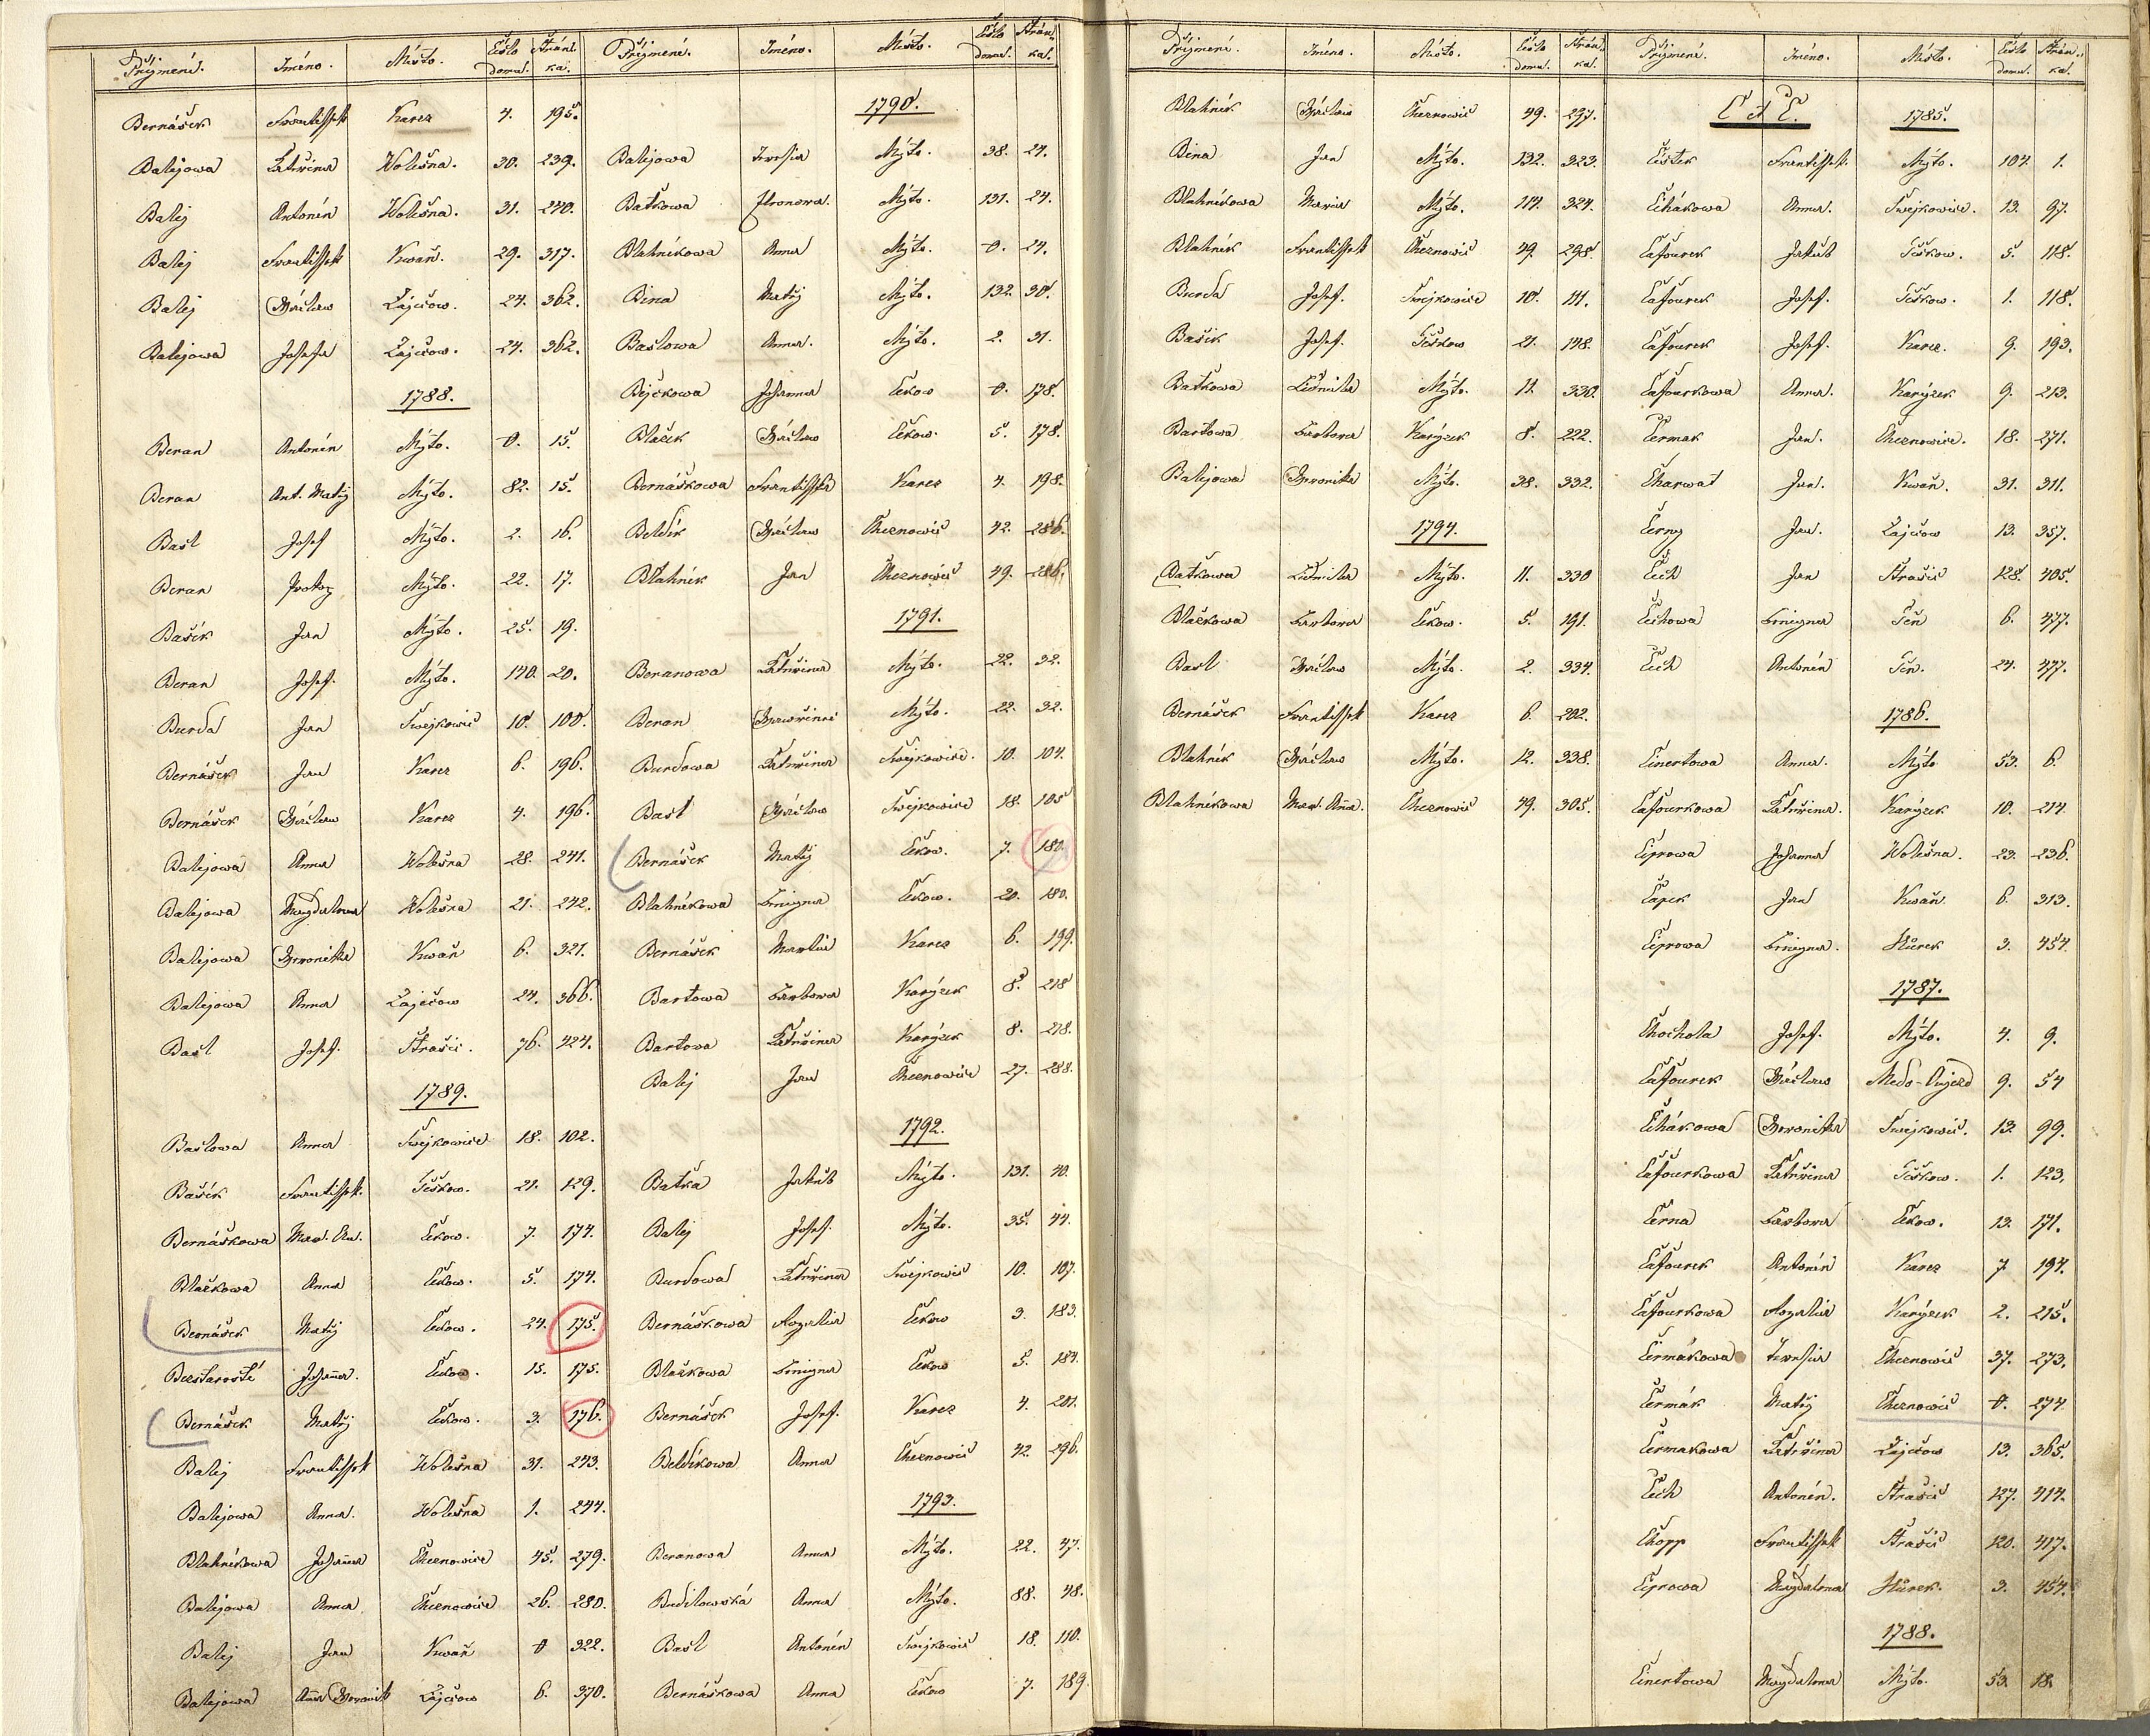 Příjmení. Jméno. Místo. Číslo domu. Stránka.
Bernášek Frantissek Karez 4. 195.
Balejowa Kateřina Wolešna. 30. 239.
Balej Antonín Wolešna. 31. 240.
Balej Frantissek Kwaň. 29. 317.
Balej Wáclaw Zaječow. 24. 362.
Balejowa Josefa Zaječow. 24. 362.
1788.
Beran Antonín Mýto. 0. 15.
Beran Ant. Matěj Mýto. 82. 15.
Bašl Josef Mýto. 2. 16.
Beran Prokop Mýto. 22. 17.
Bašik Jan Mýto. 25. 19.
Beran Josef. Mýto. 140. 20.
Burda Jan Swejkowic 10. 100.
Bernášek Jan Karez 6. 196.
Bernášek Wáclaw Karez 4. 196.
Balejowa Anna Wolešna 28. 241.
Balejowa Magdalena Wolešna 21. 242.
Balejowa Weronika Kwaň 6. 321.
Balejowa Anna Zaječow 24. 366.
Bašl Josef. Strašic. 76. 424.
1789.
Bašlowa Anna Swejkowice 18. 102.
Bašik Frantissek. Těškow. 21. 129.
Bernáškowa Mar. An. Čekow. 7. 174.
Blaškowa Anna Čekow. 5. 174.
Bernášek Matěj Čekow. 24. 175.
Bezstarosti Johanna. Čekow. 15. 175.
Bernášek Matěj Čekow. 3. 176.
Balej Frantissek Wolešna 31. 243.
Balejowa Anna. Wolešna 1. 244.
Blahníkowa Johanna Cheznowice 45. 279.
Balejowa Anna Cheznowice 26. 280.
Balej Jan Kwaň 0 322.
Balejowa Anna Weronik Zaječow 6. 370.
Příjmení. Jméno. Místo. Číslo domu. Stránka.
1790.
Balejowa Teresia Mýto. 38. 24.
Baťkowa Eleonora. Mýto. 131. 24.
Blahníkowa Anna Mýto. 0. 24.
Bina Matěj Mýto. 132. 30.
Bašlowa Anna. Mýto. 2. 31.
Bejčkowa Johanna Čekow 0. 178.
Blašek Wáclaw Čekow. 5. 178.
Bernáškowa Frantisska Karez 4. 198.
Beldík Wáclaw Cheznowic 42. 286.
Blahník Jan Cheznowic 49. 286.
1791.
Beranowa Kateřina Mýto. 22. 32.
Beran Wawřinec Mýto. 22. 32.
Burdowa Kateřina Swejkowice. 10. 104.
Bašl Wáclaw Swejkowice 18. 105
Bernášek Matěj Čekow. 7. 180.
Blahníkowa Lucigna Čekow. 20. 180.
Bernášek Martin Karez 6. 199.
Bartowa Barbora Karýzek 8. 218
Bartowa Kateřina Karýzek 8. 218.
Balej Jan Cheznowice 27. 288.
1792.
Baťka Jakub Mýto. 131. 40.
Balej Josef. Mýto. 35. 44.
Burdowa Kateřina Swejkowic 10. 107.
Bernáškowa Rozalia Čekow 3. 183.
Blaškowa Čekow 5. 184.
Bernášek Josef. Karez 4. 201.
Beldíkowa Anna Cheznowic 42. 296.
1793.
Beranowa Anna Mýto. 22. 47.
Budilowská Anna Mýto. 88. 48.
Bašl Antonín Swejkowic 18. 110.
Bernáškowa Anna Čekow 7. 189
Příjmení. Jméno. Místo. Číslo domu. Stránka.
Blahník Wáclaw Cheznowic 49. 297.
Bina Jan Mýto. 132. 323.
Blahníkowa Maria Mýto. 114. 324.
Blahník Frantissek Cheznowic 49. 298.
Burda Josef. Swejkowice 10. 111.
Bašik Josef. Těškow 21. 148.
Baťkowa Lidmila Mýto. 11. 330.
Bartowa Barbora Karýzek 8. 222.
Balejowa Weronika Mýto. 38. 332.
1794.
Baťkowa Lidmila Mýto. 11. 330
Blaškowa Barbora Čekow. 5. 191.
Bašl Wáclaw Mýto. 2. 334.
Bernášek Frantissek Karez 6. 202.
Blahník Wáclaw Mýto. 12. 338.
Blahníkowa Mar. Ana. Cheznowic 49. 305.
Příjmení. Jméno. Místo. Číslo domu. Stránka.
C et Č. 1785.
Čistek Frantissek. Mýto. 104. 1.
Cihákowa Anna. Swejkowice. 13. 97.
Cafourek Jakub Těškow. 5. 118.
Cafourek Josef. Těškow. 1. 118.
Cafourek Josef. Karez. 9. 193.
Cafourkowa Anna. Karýzek 9. 213.
Čermak Jan. Cheznowice. 18. 271.
Charwat Jan. Kwaň. 31. 311.
Černy Jan. Zaječow 13. 357.
Čech Jan Strašic 128. 405.
Čechowa Těň 6. 477.
Čech Antonín Těň. 24. 477.
1786.
Cinertowa Anna. Mýto 53. 6.
Cafourkowa Kateřina. Karýzek 10. 214.
Ciprowa Johanna Wolešna. 23. 236.
Čapek Jan Kwaň 6. 313.
Ciprowa Hůrek 3. 454.
1787.
Chochola Josef. Mýto. 4. 9.
Cafourek Wáclaw Medo-Oujezd 9. 54
Cihákowa Weronika Swejkowic. 13. 99.
Cafourkowa Kateřina Těškow. 1. 123.
Černa Barbora Čekow. 13. 171.
Cafourek Antonín Karez 7. 194.
Cafourkowa Rozalia Karýzek 2. 215.
Čermákowa Teresia Cheznowic 37. 273.
Čermák Matěj Cheznowic 0. 274
Čermakowa Kateřina Zaječow 13. 365.
Čech Antonín. Strašic 127. 414.
Chopp Frantissek Strašic 120. 417.
Ciprowa Magdalena Hůrek. 3. 454.
1788.
Cinertowa Magdalena Mýto. 53. 18.